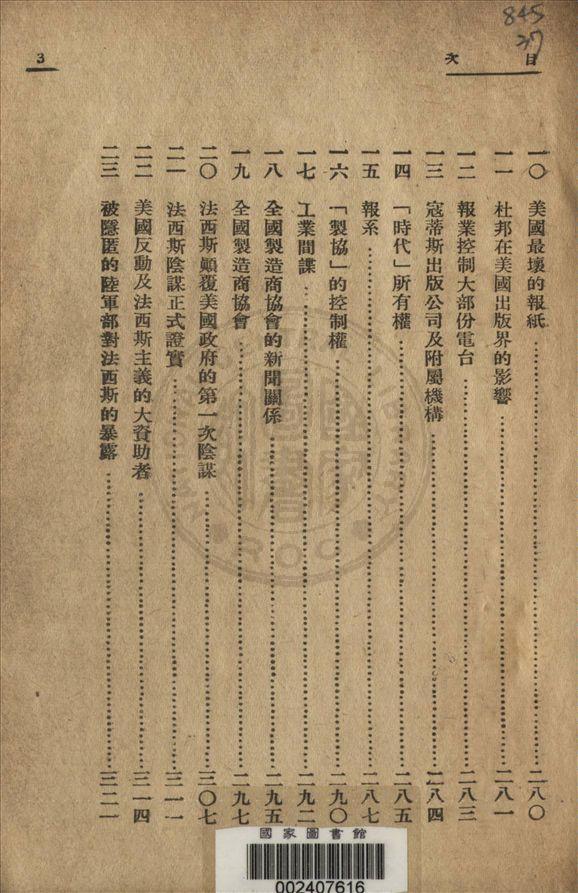 845
37
目次
3
一〇 美國最壞的報紙……二八〇
一一 杜邦在美國出版界的影響……二八一
一二 報業控制大部份電台……二八三
一三 寇蒂斯出版公司及附屬機構……二八四
一四 「時代」所有權……二八五
一五 報系……二八七
一六 「製協」的控制權……二九〇
一七 工業間諜……二九二
一八 全國製造商協會的新聞關係……二九五
一九 全國製造商協會……二九七
二〇 法西斯顛覆美國政府的第一次陰謀……三〇七
二一 法西斯陰謀正式證實……三一一
二二 美國反動及法西斯主義的大資助者……三一四
二三 被隱匿的陸軍部對法西斯的暴露……三二一
國家圖書館
002407616